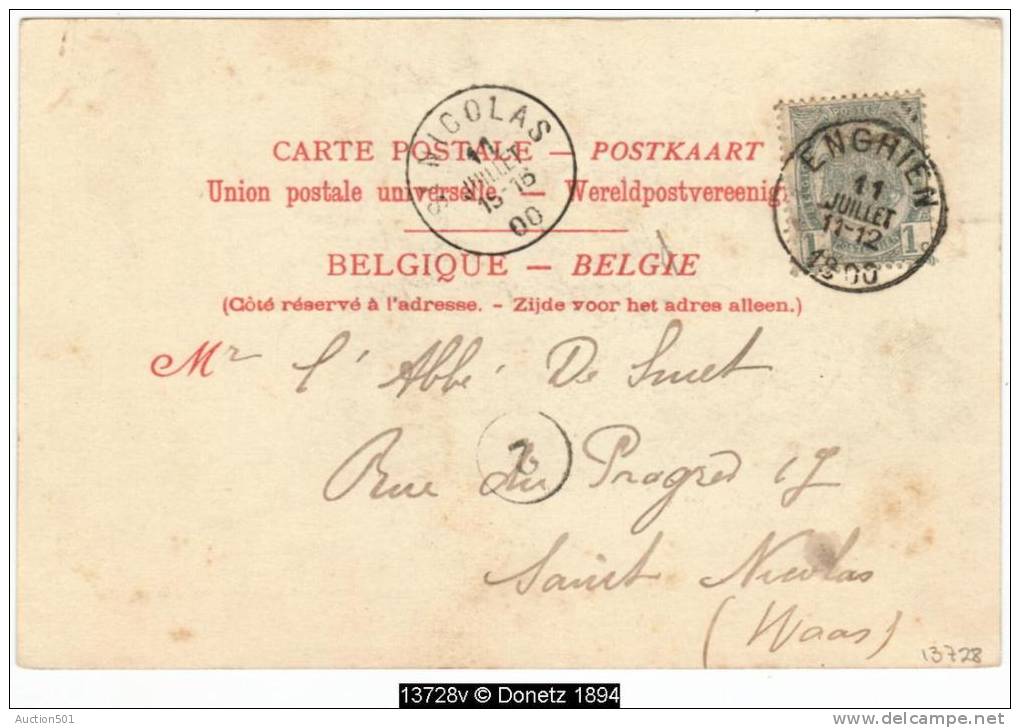 CARTE POSTALE — POSTKAART
Union postale universelle. — Wereldpostvereenig
BELGIQUE — BELGIE
(Côté réservé à l'adresse. – Zijde voor het adres alleen.)
ST NICOLAS
11
JUILLET
15-16
00
POSTE
1 1c
ENGHIEN
11
JUILLET
11-12
1900
Mr l'Abbé De Smet
2
Rue du Progrès 17
Saint Nicolas
(Waas)
13728
13728v © Donetz 1894
Auction501
www.delcampe.net